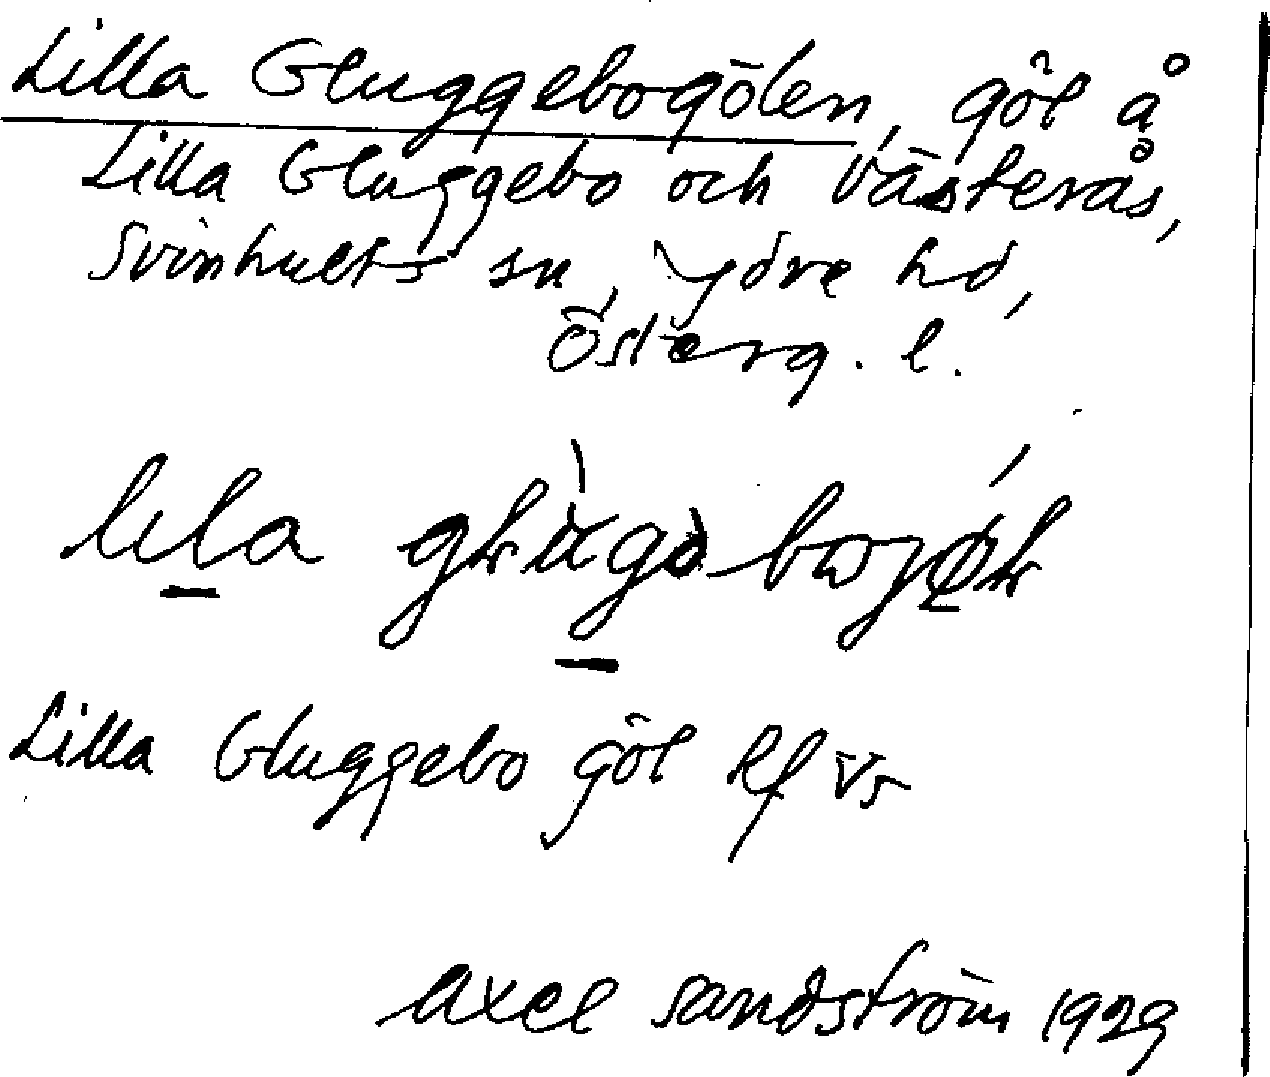 Lilla Gluggebogölen, göl å
Lilla Gluggebo och Västerås,
Svinhults sn, Ydre hd,
Österg. l.
Lilla Gluggebo göl Rf Vs
Axel Sandström 1929